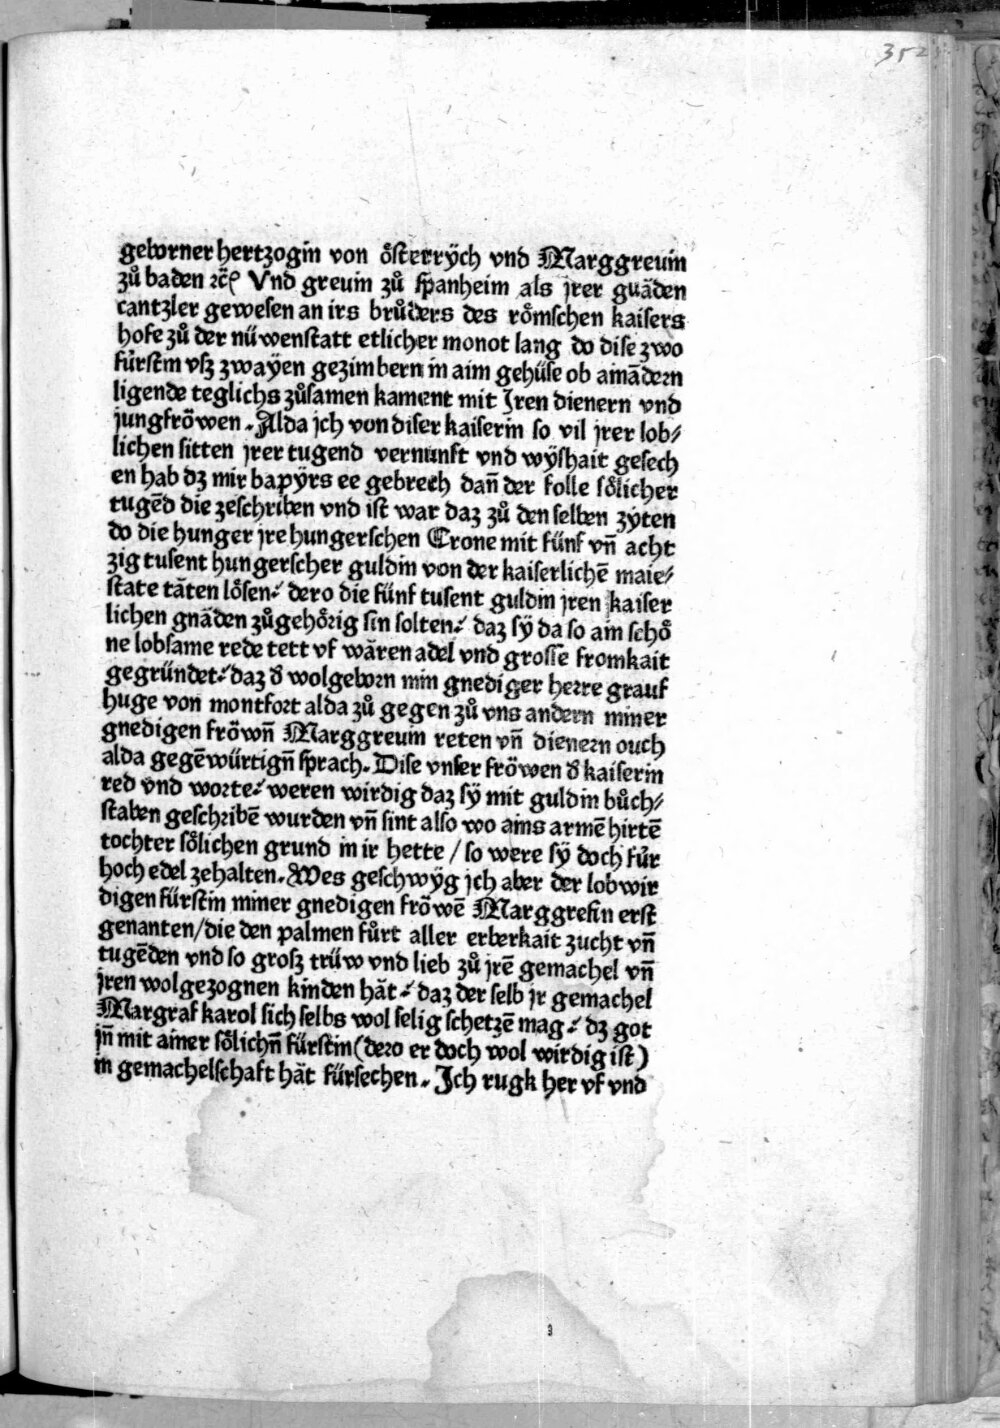 352
geborner hertzogin von oͤsterrÿch vnd Marggreuin
zuͦ baden ꝛcꝭ Vnd greuin zuͦ spanheim als jrer guāden
cantzler gewesen an irs bruͦders des roͤmschen kaisers
hofe zuͦ der nüwenstatt etlicher monot lang do dise zwo
fuͤrstin vsz zwaÿen gezimbern in aim gehüse ob ainādern
ligende teglichs zuͦsamen kament mit Jren dienern vnd
jungfroͤwen. Alda jch von diser kaiserin so vil jrer lob⸗
lichen sitten jrer tugend vernunft vnd wÿshait gesech
en hab dz mir bapÿrs ee gebrech dañ der folle soͤlicher
tugēd die zeschriben vnd ist war daz zuͦ den selben zÿten
do die hunger jre hungerschen Crone mit fünf vñ acht
zig tusent hungerscher guldin von der kaiserlichē maie⸗
state tāten loͤsen⸝ dero die fünf tusent guldin jren kaiser
lichen gnāden zuͦgehoͤrig sin solten⸝ daz sÿ da so ain schoͤ
ne lobsame rede tett vf wāren adel vnd grosse fromkait
gegründet⸝ daz d̕ wolgeborn min gnediger herre grauf
huge von montfort alda zuͦ gegen zuͦ vns andern miner
gnedigen froͤwñ Marggreuin reten vñ dienern ouch
alda gegēwürtigñ sprach. Dise vnser froͤwen d̕ kaiserin
red vnd worte⸝ weren wirdig daz sÿ mit guldin buͦch⸗
staben geschribē wurden vñ sint also wo ains armē hirtē
tochter soͤlichen grund in ir hette / so were sÿ doch fuͤr
hoch edel zehalten. Wes geschwÿg jch aber der lobwir
digen fürstin miner gnedigen froͤwē Marggrefin erst
genanten/die den palmen fuͤrt aller erberkait zucht vñ
tugēden vnd so grosz trüw vnd lieb zuͦ jrē gemachel vñ
jren wolgezognen kinden hāt⸝ daz der selb jr gemachel
Margraf karol sich selbs wol selig schetzē mag⸝ dz got
jñ mit ainer soͤlichñ fürstin (dero er doch wol wirdig ist)
in gemachelschaft hāt fürsechen. Jch rugk her vf vnd